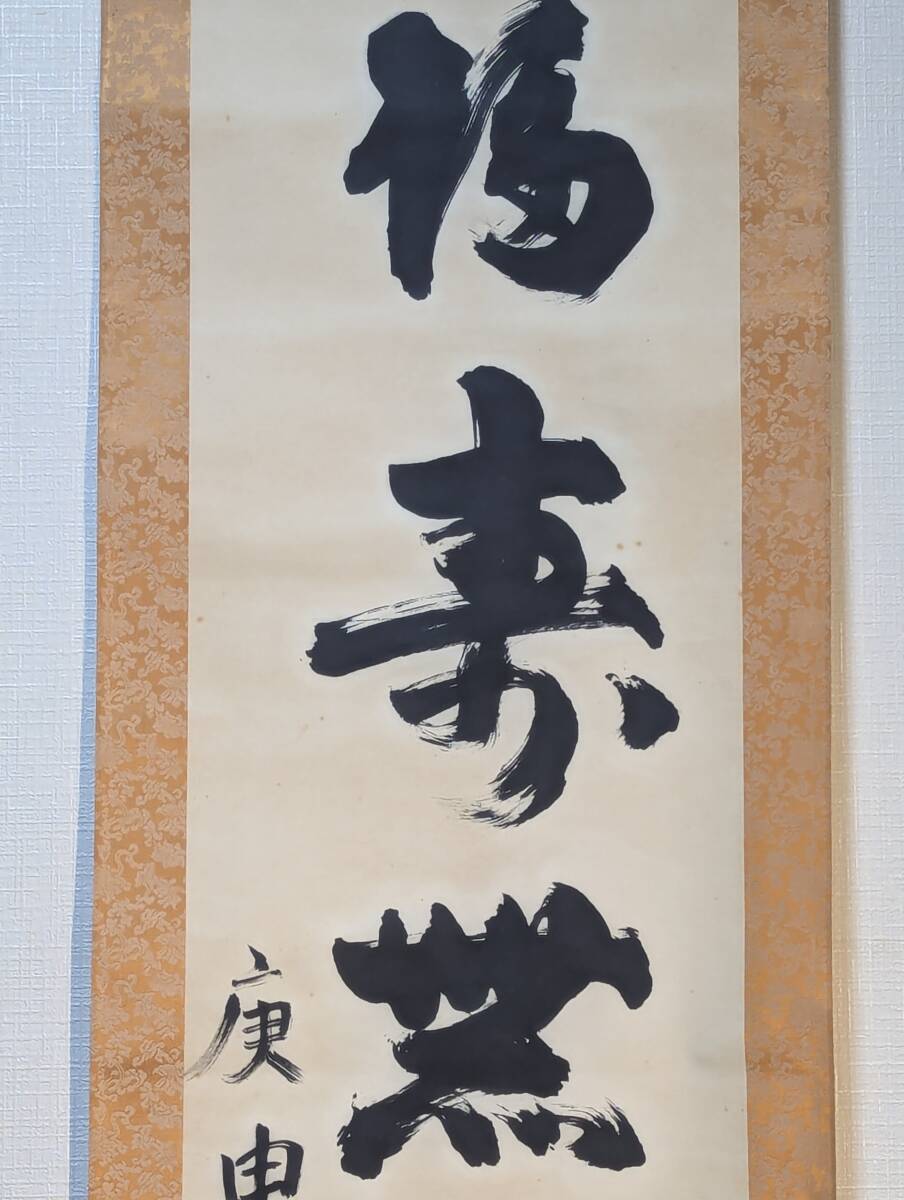 福寿無
庚申